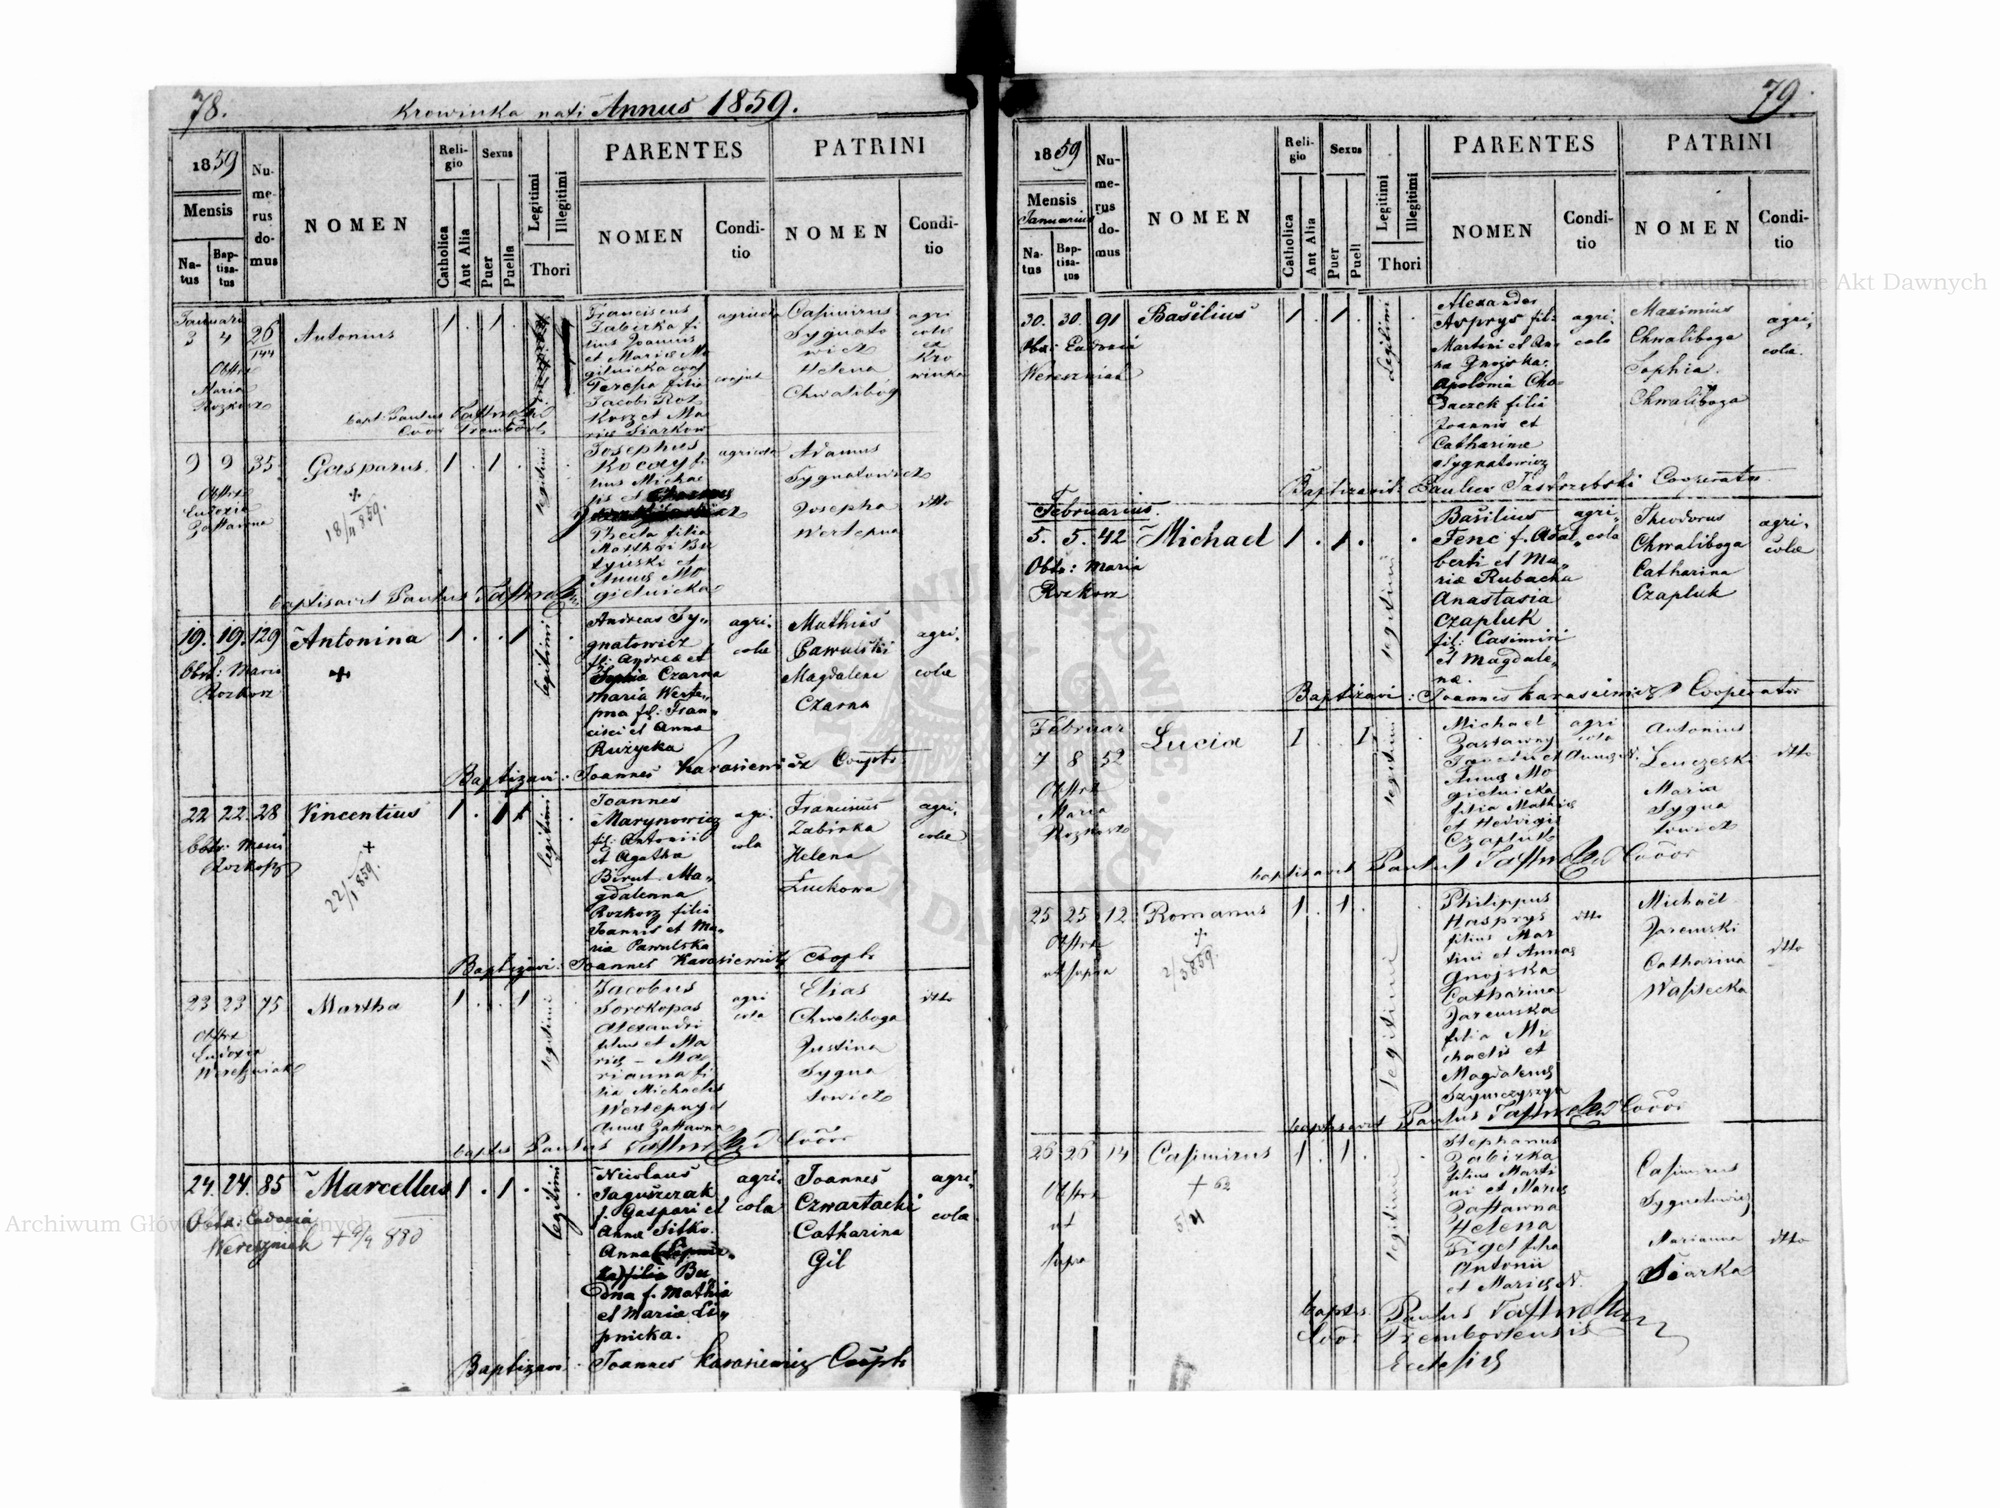 78.
Krowinka nati Annus 1859.
1859
Mensis
Natus
Baptisatus
Numerus domus
NOMEN
Religio
Catholica
Aut Alia
Sexus
Puer
Puella
Legitimi
Illegitimi
Thori
PARENTES
NOMEN
Conditio
PATRINI
NOMEN
Conditio
Januari
3 4 26
144
Obstrx
Maria
Rozkorz
Antonius
1 . 1 .
Franciscus
Zabirka fi
lius Joannis
et Maria Mo
gielnicka
Teresa filia
Jacobi Roz
korz et Ma
ria Siarkow
agricola
Casimirus
Sygnato
wicz
Helena
Chwalibog
agri
colae
ex
Kro
winka
9 9 35
Obstrx
Eudoxia
Zastawna
Gasparus.
18/11 859.
1 . 1 .
legitimi
Josephus
Kocay fi
lius Michae
lis et
Thecla filia
Matthaei Bu
tynski et
Annae Mo
gielnicka
agricola
Adamus
Sygnatowicz
Josepha
Wertepna
ditto
baptisavit Paulus
19. 19. 129
Obst: Maria
Rozkorz
Antonina
+
1 . . 1
legitimi
Andreas Sy-
gnatowicz
fil: Andrea et
Sophia Czarna
Maria Werte-
pna fil: Fran-
cisci et Anna
Ruzycka
agri-
colae
Mathias
Pawulski
Magdalena
Czarna
agri-
colae
Baptizavi: Joannes Karasiewicz Coopts
22 22. 28
Obstr: Maria
Rozkorz
Vincentius
+
22/1 859.
legitimi
Joannes
Marynowicz
fil: Antonii
et Agatha
Birut Ma-
gdalenna
Rozkorz filia
Joannis et Ma-
ria Pawulska
agri-
cola
Franciscus
Zabirka
Helena
Łuckowa
agri-
colae
Baptizavi: Joannes Karasiewicz Coopts
23 23 75
Obstrx
Eudoxia
Wereszniak
Martha
1 . . 1
legitimi
Jacobus
Sorokopas
Alexandri
filius et Ma
riae – Ma
rianna fi
lia Michaelis
Wertepny et
Annae Zastawna
agri
cola
Elias
Chwaliboga
Justina
Sygna
towicz
ditto
24. 24. 85
Obstx: Eudoxia
Wereszniak + 9/4 880
Marcellus
1 . 1 .
legitimi
Nicolaus
Jaguszczak
f. Gaspari et
Anna Sitko.
Anna
filia Bu
dna f. Mathia
et Maria Li-
pnicka.
agri-
cola
Joannes
Czwartacki
Catharina
Gil
agri-
cola
Baptizavi Joannes Karasiewicz Coopts
79.
1859
Mensis
Januarius
Natus
Baptisatus
Numerus domus
NOMEN
Religio
Catholica
Aut Alia
Sexus
Puer
Puell
Legitimi
Illegitimi
Thori
PARENTES
NOMEN
Conditio
PATRINI
NOMEN
Conditio
30. 30. 91
Obs: Eudoxia
Wereszniak
Basilius
1 . 1 .
legitimi
Alexander
Asprys fil:
Martini et An-
na Gnojska.
Apolonia Cho-
daczek filia
Joannis et
Catharinae
Sygnatowicz
agri-
cola
Maximius
Chwaliboga
Sophia
Chwaliboga
agri-
cola.
Baptizavit Paulus Jastrzebski Cooperator
Februarius.
5. 5. 42
Obstx: Maria
Rozkorz
Michael
1 . 1 .
legitimi
Basilius
Fenc f. Adal-
berti et Ma-
riae Rubacka
Anastasia
Czapluk
fil: Casimiri
et Magdale-
nae.
agri-
cola
Theodorus
Chwaliboga
Catharina
Czapluk
agri-
colae
Baptizavi: Joannes Karasiewicz Cooperator
Februar
7 8 52
Obstrx
Maria
Rozkorz
Lucia
1 . . 1
legitimi
Michael
Zastawny
Annae Mo
gielnicka
filia Mathiae
et Hedvigis
Czapluk
agri
cola
Antonius
Maria
Sygna
towicz
ditto
25 25 12
Obstrx
ut supra
Romanus
2/3 859.
1 . 1 .
legitimi
Philippus
Hasprys
filius Mar
tini et Annae
Gnojska
Catharina
Jaremska
filia Mi
chaelis et
Magdalenae
Szymczyszyn
ditto
Michaël
Jaremski
Catharina
Wasitecka
ditto
26 26 14
Obstrx
ut
supra
Casimirus
+ 62
5/11
1 . 1 .
legitimi
Stephanus
Zabirka
filius Marti
ni et Mariae
Zastawna
Helena
Figel filia
Antonii
et Mariae N.
Casimirus
Sygnatowicz
Marianna
Siarka
ditto
Coöor Trembovlensis
Ecclesiae
Archiwum Główne Akt Dawnych
Archiwum Główne Akt Dawnych